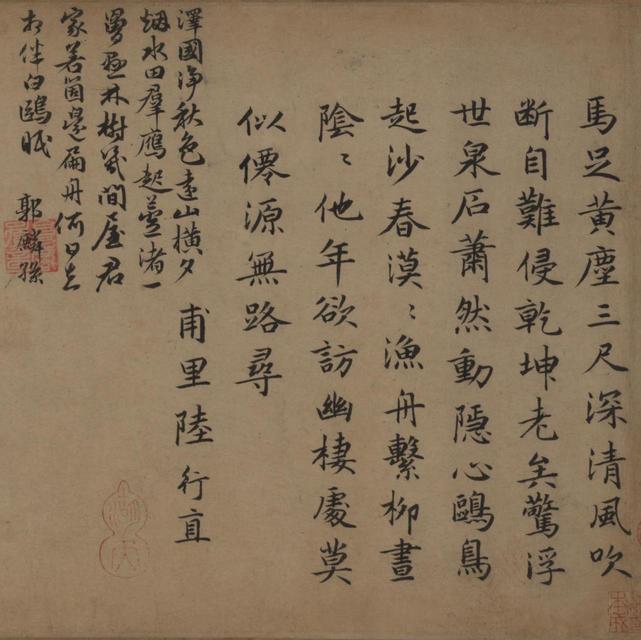 馬足黃塵三尺深清風吹
断自難侵乾坤老矣驚浮
世泉石蕭然動隱心鷗鳥
起沙春漠〻漁舟繫柳晝
陰〻他年欲訪幽棲處莫
似僊源無路尋
甫里陸行直
澤國淨秋色遠山橫夕
烟水田羣鴈起蘆渚一
罾懸林樹幾間屋君
家若箇邊扁舟何日去
相伴白鷗眠
郭麟孫